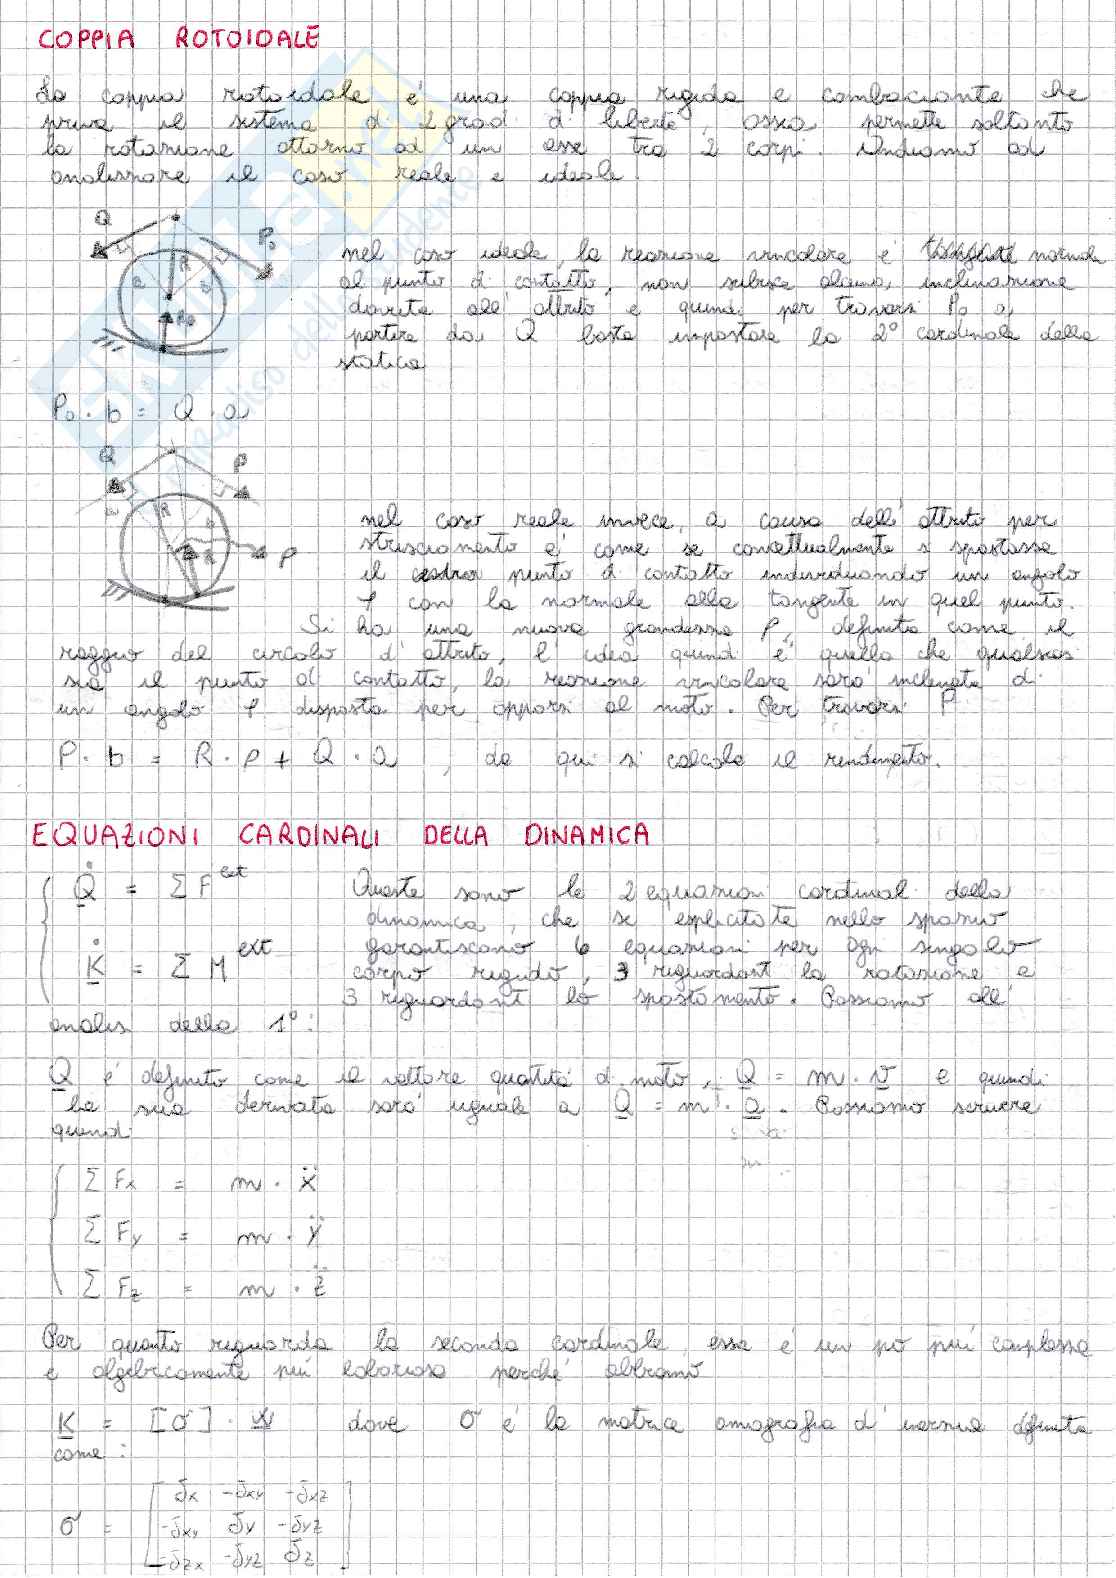 COPPIA ROTOIDALE
La coppia rotoidale é una coppia rigida e combaciante che
priva il sistema di 2 gradi di libertà, ossia permette soltanto
la rotazione attorno ad un asse tra 2 corpi. Andiamo ad
analizzare il caso reale e ideale.
Q
P₀
a R b
R₀
nel caso ideale, la reazione vincolare é normale
al punto di contatto, non subisce alcuna inclinazione
dovuta all'attrito e quindi per trovarsi P₀ a
partire da Q basta impostare la 2° cardinale della
statica
P₀ · b = Q · a
Q
P
R
ρ
nel caso reale invece, a causa dell'attrito per
strisciamento é come se concettualmente si spostasse
il punto di contatto individuando un angolo
φ con la normale alla tangente in quel punto.
Si ha una nuova grandezza ρ, definita come il
raggio del circolo d'attrito, l'idea quindi é quella che qualsias
sia il punto di contatto, la reazione vincolare sará inclinata di
un angolo φ disposta per opporsi al moto. Per trovarsi P
P · b = R · ρ + Q · a , da qui si calcola il rendimento.
EQUAZIONI CARDINALI DELLA DINAMICA
Q̇ = Σ F ext
Queste sono le 2 equazioni cardinali della
dinamica, che se esplicitate nello spazio
K̇ = Σ M ext
garantiscono 6 equazioni per ogni singolo
corpo rigido, 3 riguardanti la rotazione e
3 riguardanti lo spostamento. Passiamo all'
analisi della 1°:
Q é definito come il vettore quantitá di moto, Q = m · v e quindi
la sua derivata sará uguale a Q̇ = m · a. Possiamo scrivere
quindi
Σ Fx = m · ẍ
Σ Fy = m · ÿ
Σ Fz = m · z̈
Per quanto riguarda la seconda cardinale, essa é un po piú complessa
e algebricamente piú laboriosa perché abbiamo
K = [σ] · w dove σ é la matrice omografia d'inerzia definita
come:
σ = Jx -Jxy -Jxz
-Jxy Jy -Jyz
-Jzx -Jyz Jz